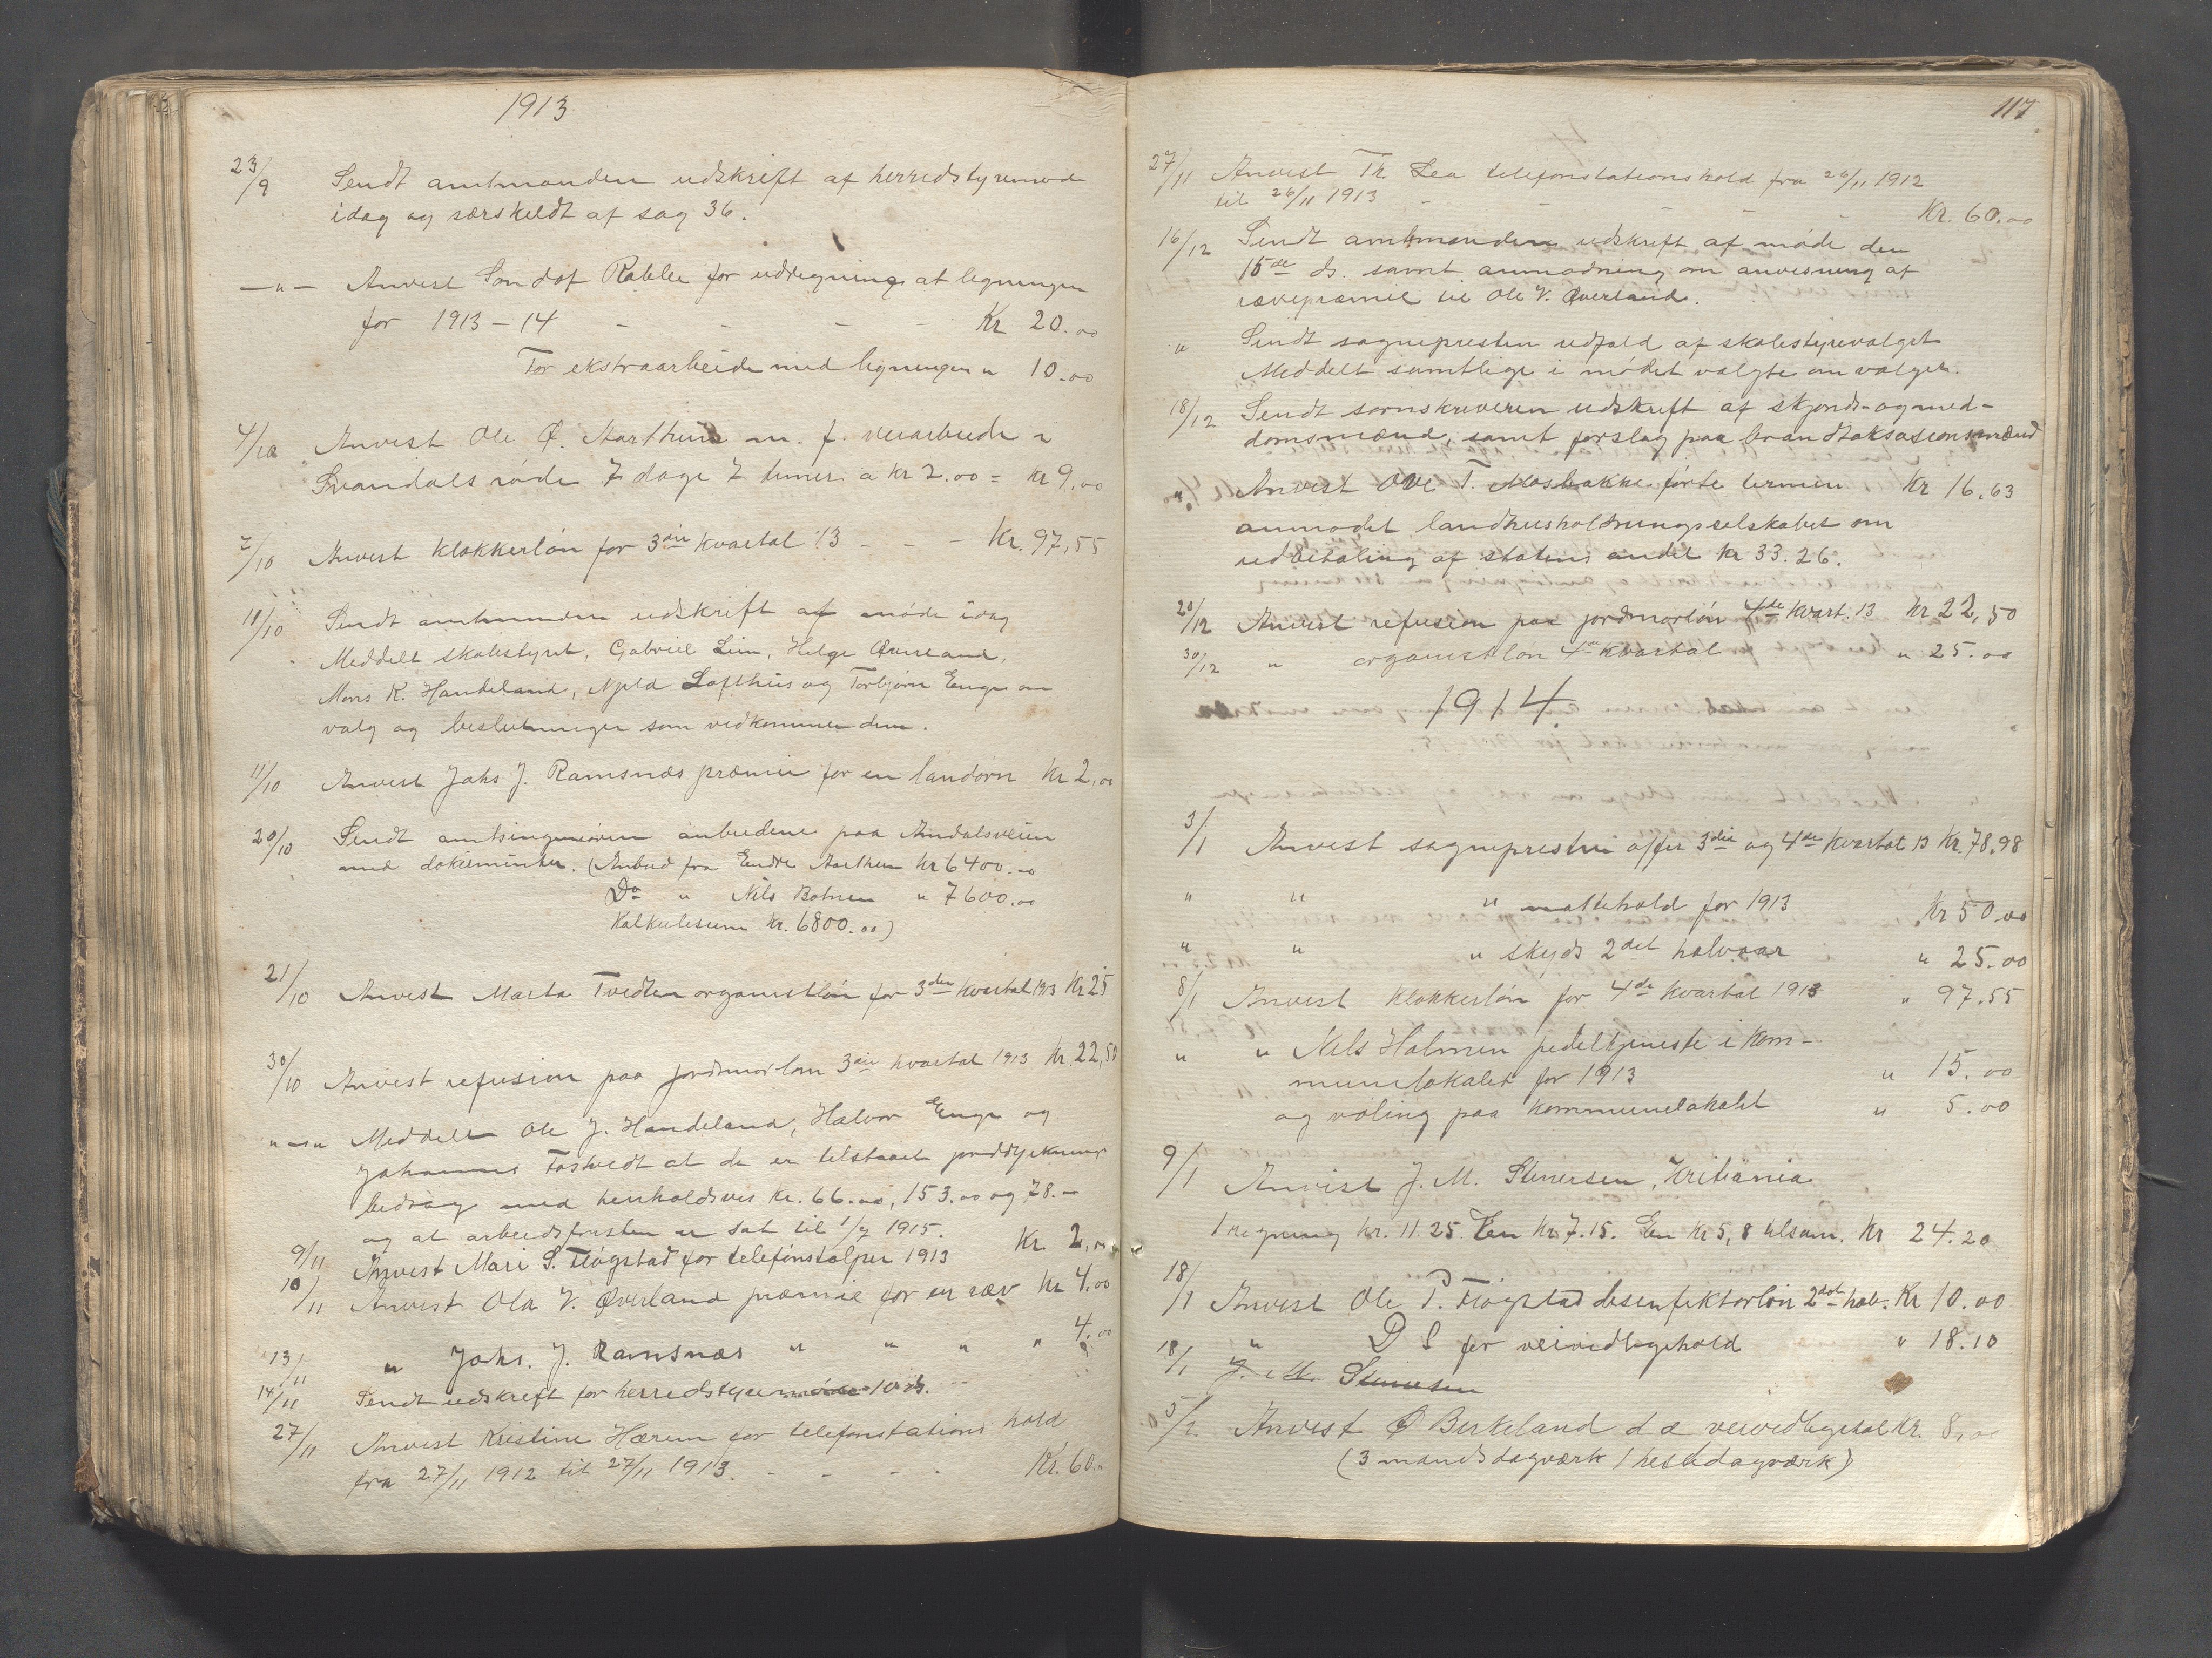 1913
23/9 Sendt amtmanden udskrift af herredstyremøde
idag og særskildt af sag 36.
—"— Anvist Sondof Rabbe for uddregning at ligningen
for 1913-14 - - - - Kr 20.00
For ekstraarbeide med ligningen " 10.00
4/10 Anvist Ole Ø. Aarthun m. f. veiarbeide i
Svandals rode 7 dage 7 timer a kr 2.00 = kr 9.00
7/10 Anvist klokkerløn for 3die kvartal 13 - - - Kr. 97,55
11/10 Sendt amtmanden udskrift af møde idag
Meddelt skolestyret, Gabriel Lien, Helge Øverland,
Mons K. Handeland, Njeld Lofthus og Torbjørn Enge om
valg og beslutninger som vedkommer dem.
11/10 Anvist Johs J. Ramsnæs præmie for en landørn Kr 2,00
20/10 Sendt amtsingeniøren anbudene paa Aandalsveien
med dokumenter. (Anbud fra Endre Aarthun kr 6400.00
Do " Nils Botnen " 7600.00
Kalkulesum Kr. 6800.00)
21/10 Anvist Marta Tvedten organistløn for 3die kvartal 1913 Kr 25
30/10 Anvist refusion paa jordmorløn 3die kvartal 1913 Kr. 22,50
"—" Meddelt Ole J. Handeland, Halvor Enge og
Johannes Fostvedt at de er tilstaaet jorddyrknings
bidrag med henholdsvis kr. 66.00, 153.00 og 78.—
og at arbeidsfristen er sat til 1/7 1915.
9/11 Anvist Mari S. Fløgstad for telefonstolper 1913 Kr 2,00
10/11 Anvist Ola V. Øverland præmie for en ræv Kr 4,00
13/11 " Johs. J. Ramsnæs " " " " 4.00
14/11 Sendt udskrift for herredstyremøde 10 ds.
27/11 Anvist Kristine Hærem for telefonstations hold
fra 27/11 1912 til 27/11 1913. - - - - Kr. 60.—
117
27/11 Anvist Th. Lea telefonstationshold fra 26/11 1912
til 26/11 1913 - - - - - Kr. 60.00
16/12 Sendt amtmanden udskrift af møde den
15de ds. samt anmodning om anvisning af
rævepræmie til Ole V. Øverland.
" Sendt sognepresten udfald af skolestyrevalget
Meddelt samtlige i mødet valgte om valget.
18/12 Sendt sornskriveren udskrift af skjønds-og med-
domsmænd, samt forslag paa brandtaksasionsmænd
" Anvist Ove T. Mosbakke første termin Kr 16,63
anmodet landhusholdningsselskabet om
udbetaling af statens andel kr 33.26.
20/12 Anvist refusion paa jordmorløn 4de kvart. 13 kr 22,50
30/12 " organistløn 4de kvartal " 25.00
1914
3/1 Anvist sognepresten offer 3die og 4de kvartal 13 Kr. 78,98
" " " nattehold for 1913 Kr 50.00
" " " skyds 2det halvaar " 25.00
8/1 Anvist klokkerløn for 4de kvartal 1913 " 97.55
" " Nils Holmen pedeltjeneste i kom-
munelokalet for 1913 " 15.00
og voling paa kommunelokalet " 5.00
9/1 Anvist J. M. Stenersen, Kritiania
1 regning kr. 11.25. En kr 7.15. En kr 5,8 tilsam. Kr 24.20
18/1 Anvist Ole P. Fløgstad desenfektorløn 2det halv. Kr 10.00
" D S for veivedligehold " 18.10
18/1 J. M. Stenersen
5/2 Anvist Ø Birkeland d æ veivedligehol Kr. 8,00
(3 mandsdagværk 1 hestedagværk)